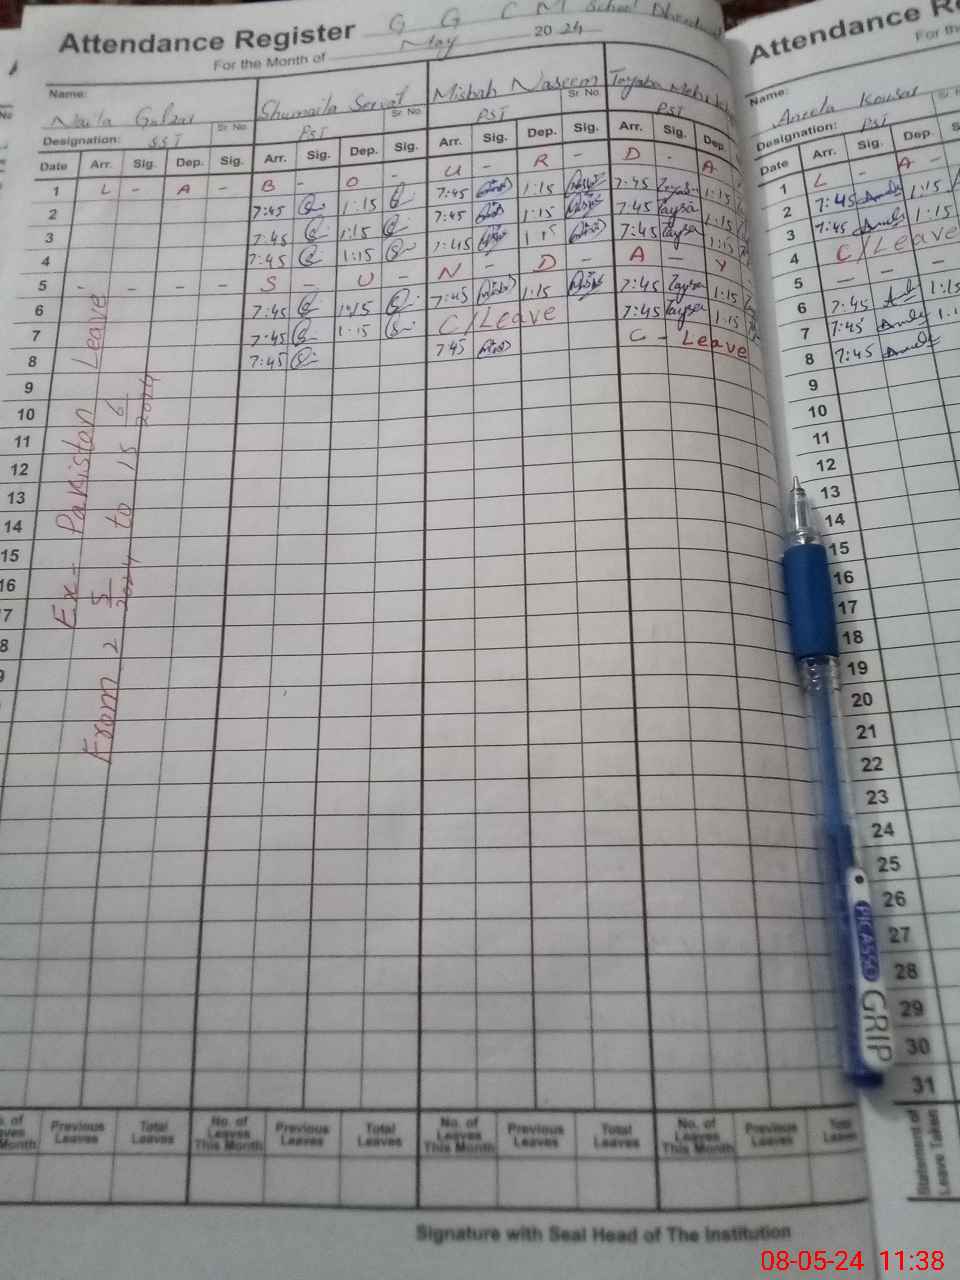 Attendance Register G G C M School
For the Month of May 2024
Name: Naila Gulzar Shumaila Servat Misbah Naseem Tayaba
Designation: SST Sr. No. PST Sr. No. PST Sr. No. PST
Date Arr. Sig. Dep. Sig. Arr. Sig. Dep. Sig. Arr. Sig. Dep. Sig. Arr. Sig. Dep.
1 L - A - B - O - U - R - D - A
2 7:45 1:15 7:45 1:15 7:45 1:15
3 7:45 1:15 7:45 1:15 7:45 Taysa 1:15
4 7:45 1:15 7:45 7:45 Taysa 1:15
5 - - - - S - U - N - D - A - Y
6 7:45 1:15 7:45 1:15 7:45 Taysa 1:15
7 7:45 1:15 C/Leave 7:45 Taysa 1:15
8 7:45 7:45 C - Leave
9
10
11
12
13
14
15
16
7
8
9
Ex-Pakistan Leave
From 2 5/2024 to 15 6/2024
No. of Leaves This Month Previous Leaves Total Leaves No. of Leaves This Month Previous Leaves Total Leaves No. of Leaves This Month Previous Leaves Total Leaves No. of Leaves This Month Previous Leaves Total Leaves
Signature with Seal Head of The Institution
Attendance
For the
Name: Aneela Kousar
Designation: PST
Date Arr. Sig. Dep.
1 L - A -
2 7:45 1:15
3 7:45 1:15
4 C/Leave
5 - - -
6 7:45 1:15
7 7:45
8 7:45
9
10
11
12
13
14
15
16
17
18
19
20
21
22
23
24
25
26
27
28
29
30
31
Statement of Leave Taken
PICASSO GRIP
08-05-24 11:38